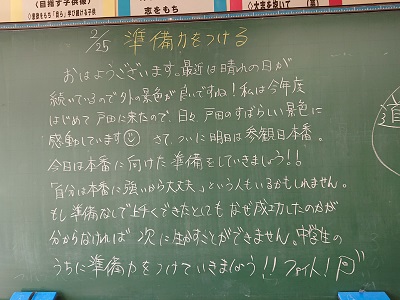 《目指す子供像》
志をもち
2/25 準備力をつける
おはようございます。最近は晴れの日が
続いているので外の景色が良いですね！私は今年度
はじめて戸田に来たので、日々、戸田のすばらしい景色に
感動しています さて、ついに明日は参観日本番。
今日は本番に向けた準備をしていきましょう！！
「自分は本番に強いから大丈夫」という人もいるかもしれません。
もし準備なしで上手くできたとしても なぜ成功したのかが
分からなければ 次に生かすことができません。中学生の
うちに準備力をつけていきましょう!! ファイト！